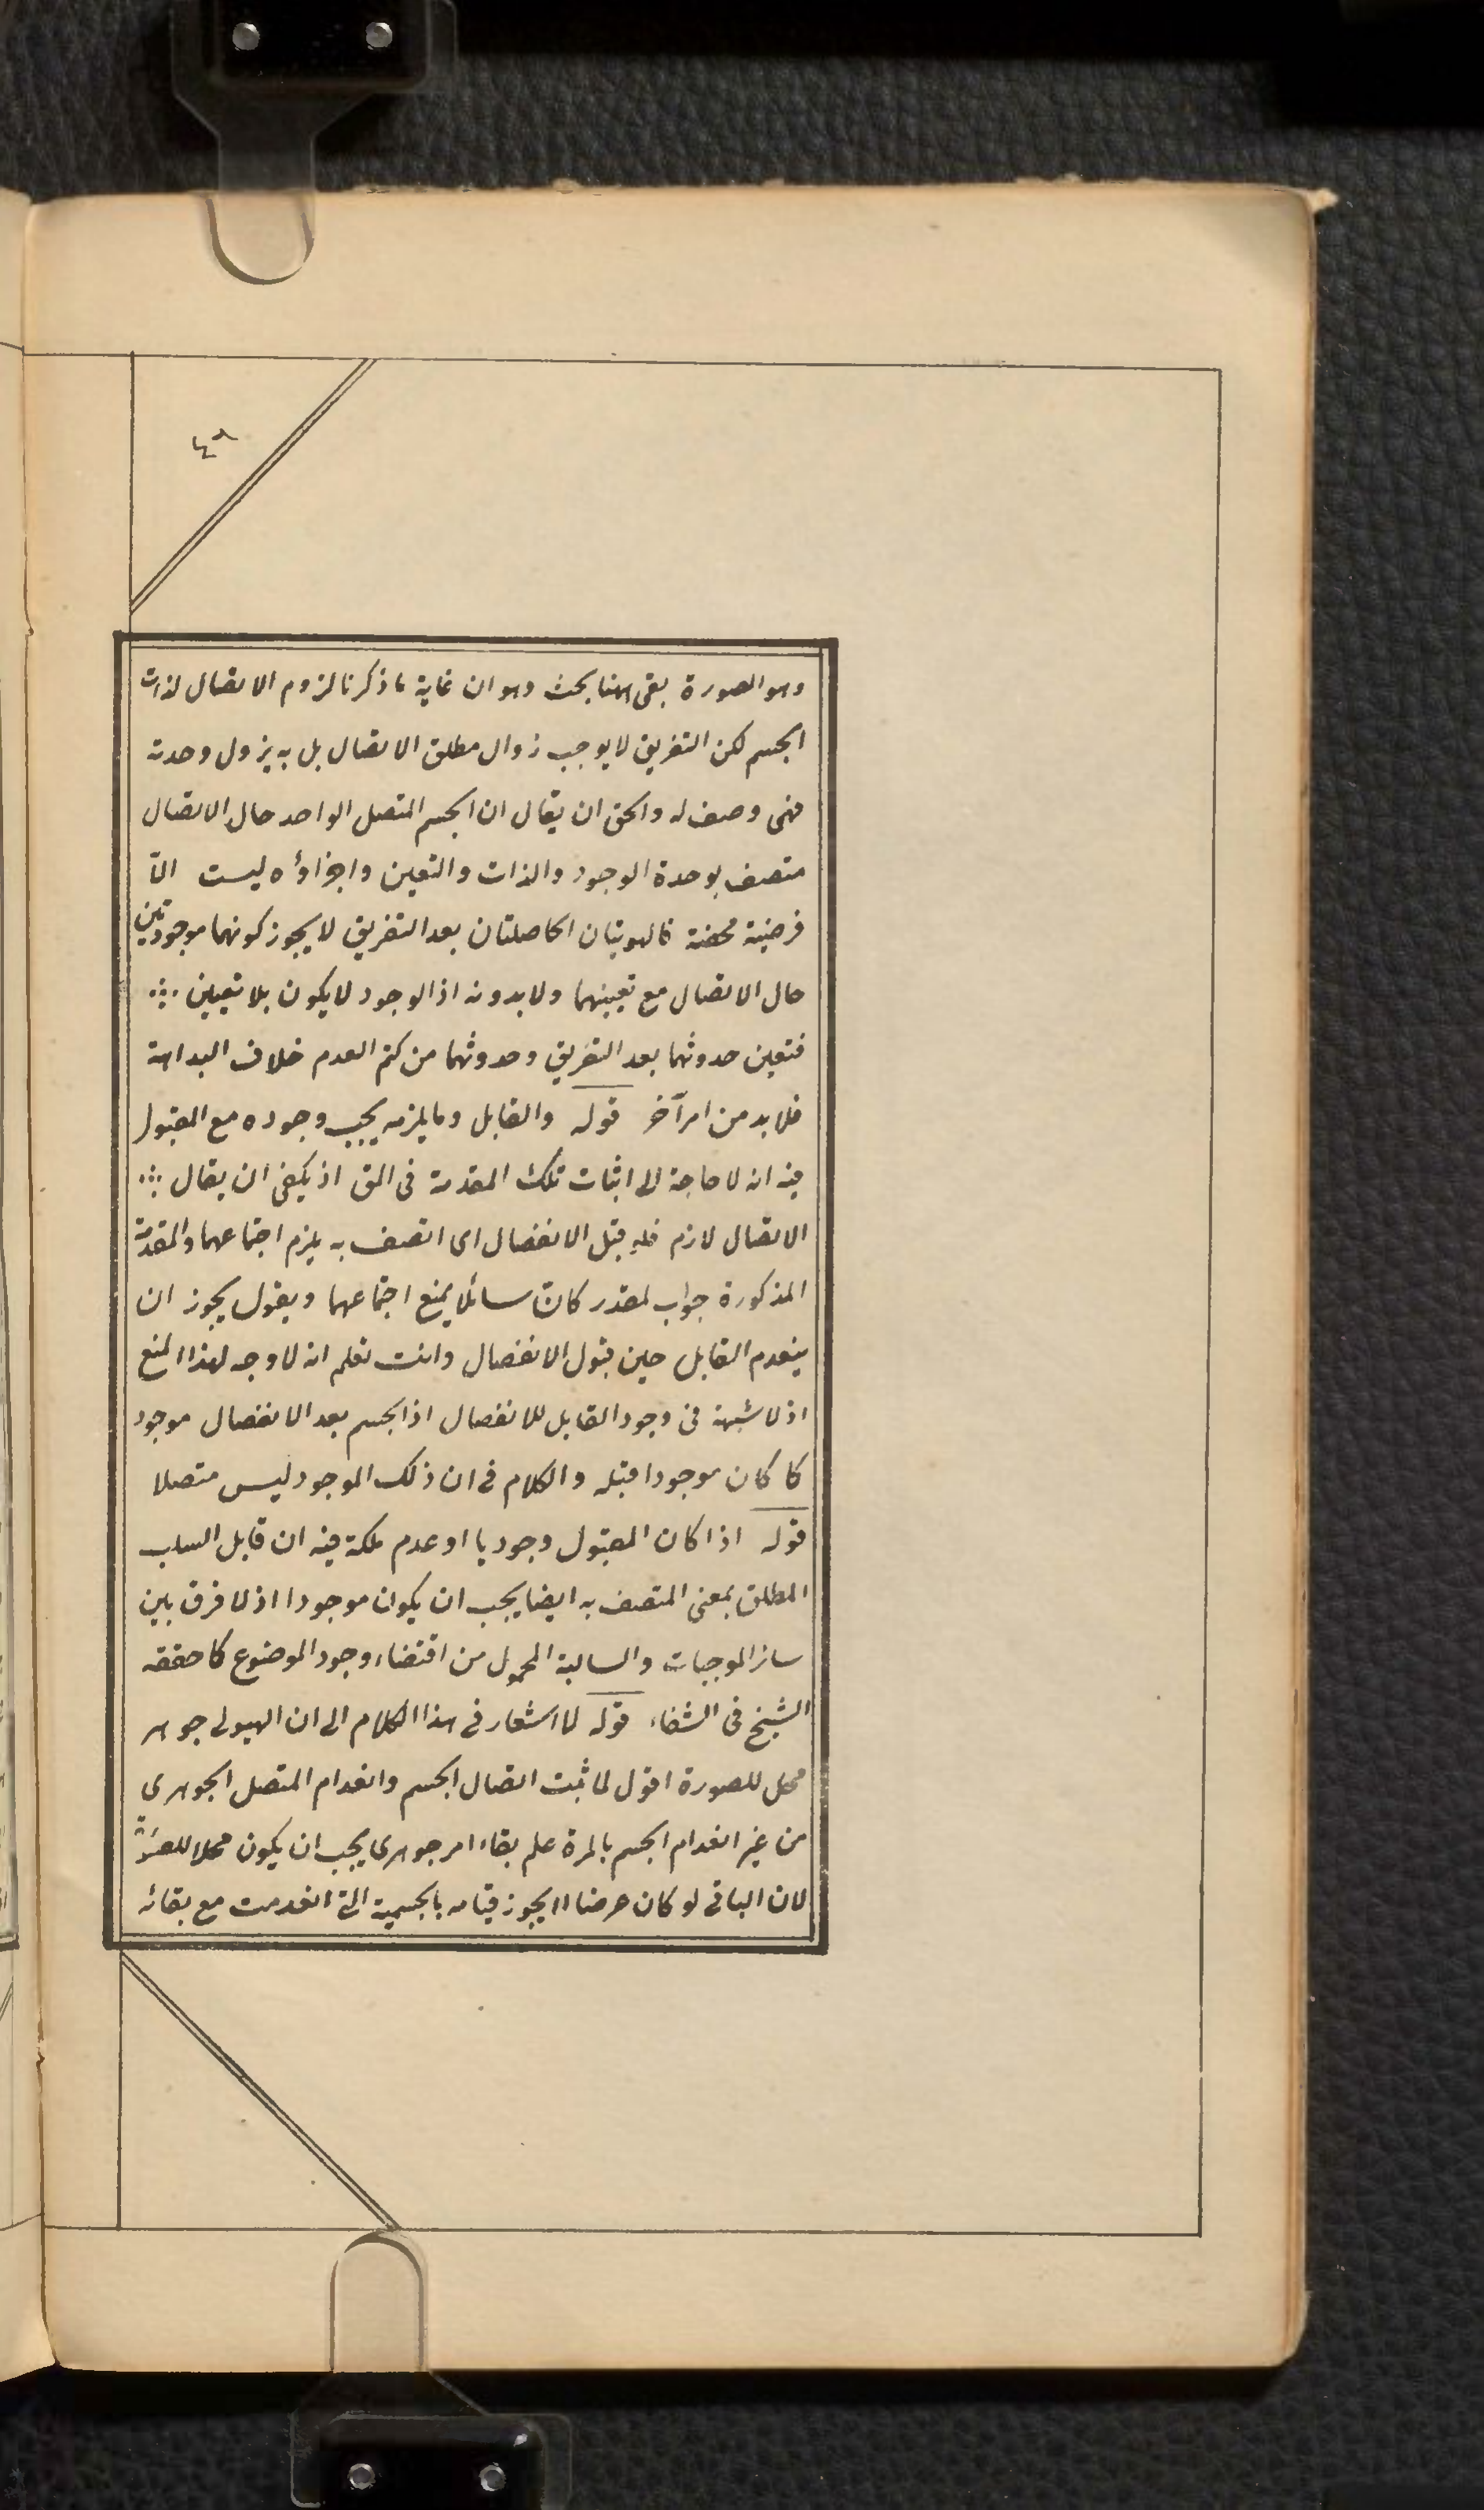 ٤٩
وهو الصورة بقى ههنا بحث وهو ان غاية ما ذكرنا لزوم الاتصال لذات
الجسم لكن التفريق لا يوجب زوال مطلق الاتصال بل به يزول وحدته
فهى وصف له والحق ان يقال ان الجسم المتصل الواحد حال الاتصال
متصف بوحدة الوجود والذات والتعين واجزاؤه ليست الّا
فرضية محضة فالهويتان الحاصلتان بعد التفريق لا يجوز كونهما موجودتين
حال الاتصال مع تعيينهما ولا بدونه اذ الوجود لا يكون بلا تعيين ∴
فتعين حدوثهما بعد التفريق وحدوثهما من كتم العدم خلاف البداهة
فلا بد من امر آخر قوله والقابل وما يلزمه يجب وجوده مع المقبول
فيه انه لا حاجة الى اثبات تلك المقدمة فى المق اذ يكفى ان يقال ∴
الاتصال لازم فلو قبل الانفصال اى اتصف به يلزم اجتماعهما والمقدمة
المذكورة جواب لمقدر كان سائلا يمنع اجتماعهما ويقول يجوز ان
ينعدم القابل حين قبول الانفصال وانت تعلم انه لا وجه لهذا المنع
اذ لا شبهة فى وجود القابل للانفصال اذ الجسم بعد الانفصال موجود
كما كان موجودا قبله والكلام فى ان ذلك الموجود ليس متصلا
قوله اذا كان المقبول وجوديا او عدم ملكة فيه ان قابل السلب
المطلق بمعنى المتصف به ايضا يجب ان يكون موجودا اذ لا فرق بين
سائر الموجبات والسالبة المحمول من اقتضاء وجود الموضوع كما حققه
الشيخ فى الشفاء قوله لا اشعار فى هذا الكلام الى ان الهيولى جوهر
محل للصورة اقول لما ثبت اتصال الجسم وانعدام المتصل الجوهرى
من غير انعدام الجسم بالمرة علم بقاء امر جوهرى يجب ان يكون محلا للصورة
لان الباقى لو كان عرضا لا يجوز قيامه بالجسمية التى انعدمت مع بقائه